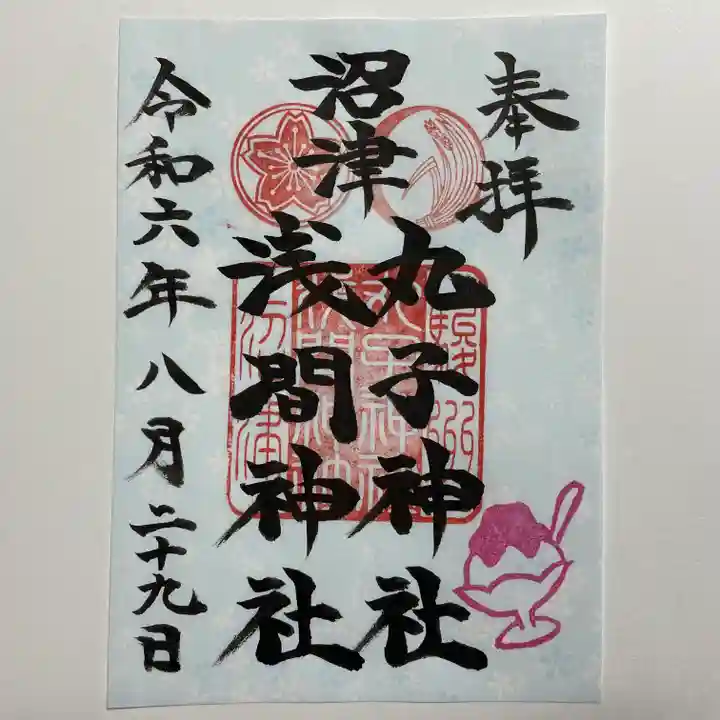 奉拝
沼津
丸子神社
浅間神社
令和六年八月二十九日